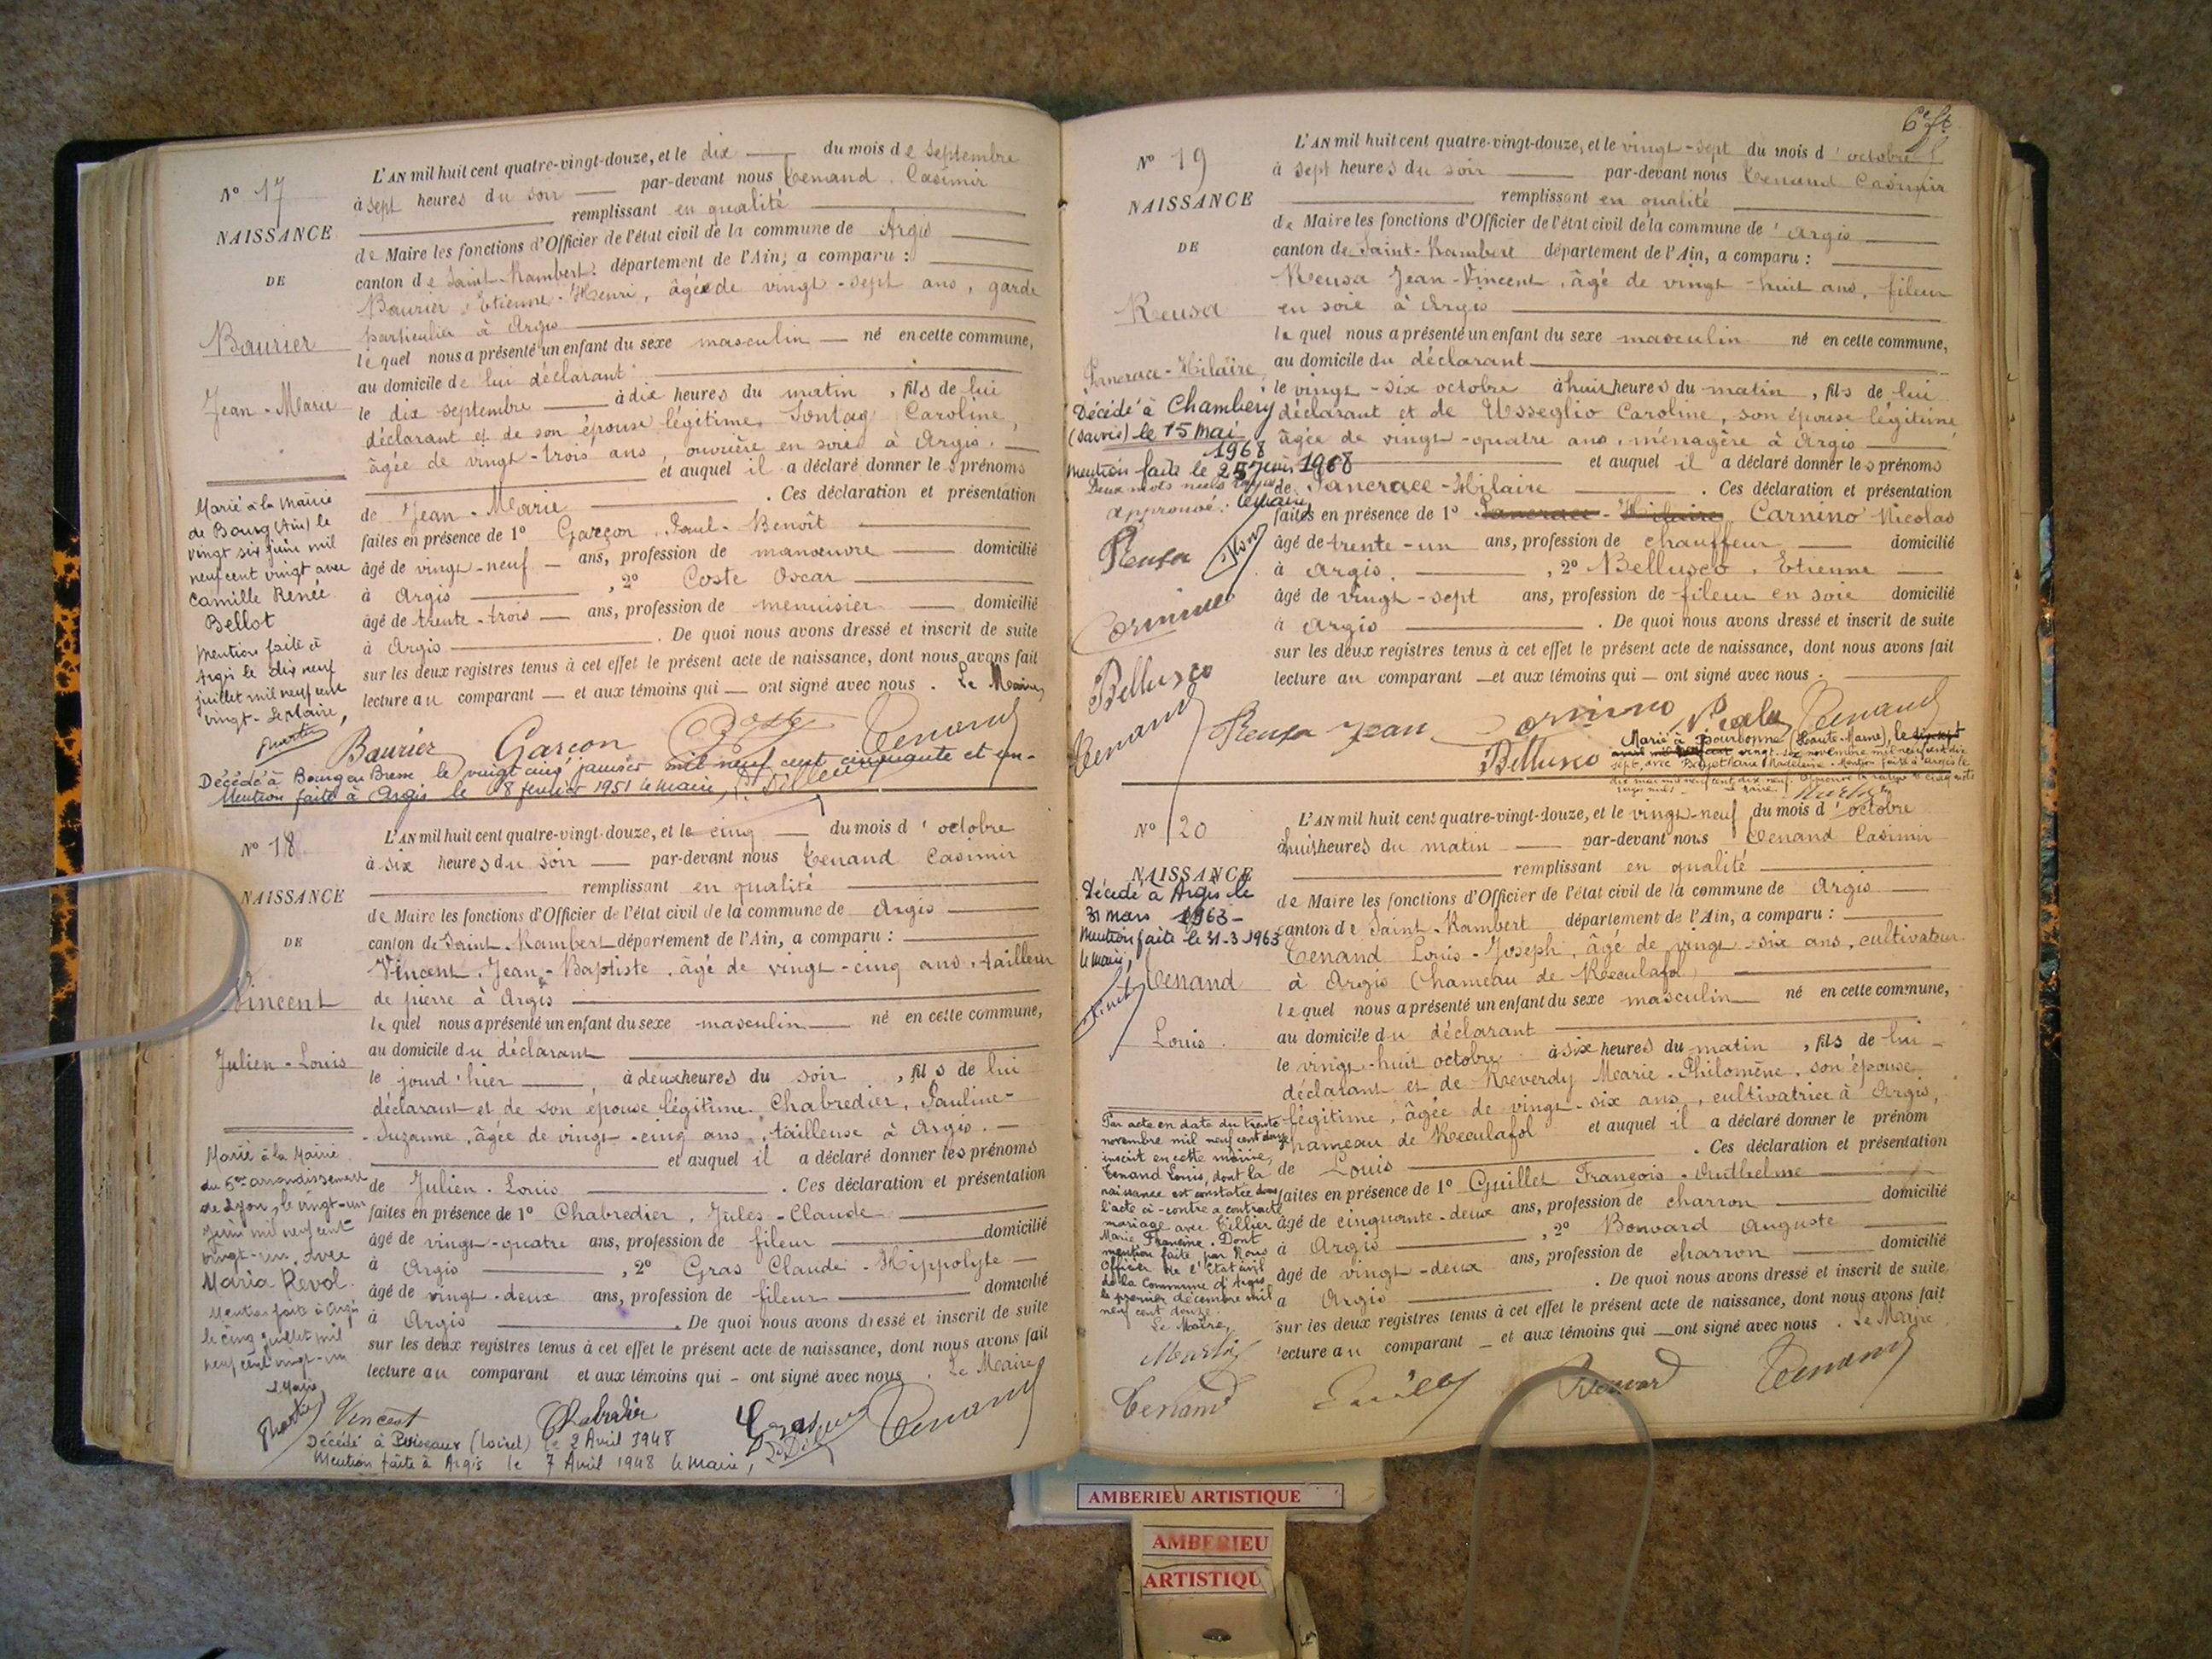 N° 17
NAISSANCE
DE
Baurier
Jean-Marie
L'AN mil huit cent quatre-vingt-douze, et le dix du mois de Septembre
à sept heures du soir par-devant nous Tenand Casimir
remplissant en qualité
de Maire les fonctions d'Officier de l'état civil de la commune de Argis
canton de Saint-Rambert département de l'Ain, a comparu :
Baurier, Etienne-Henri, âgé de vingt-sept ans, garde
particulier à Argis
lequel nous a présenté un enfant du sexe masculin né en cette commune,
au domicile de lui déclarant
le dix septembre à dix heures du matin, fils de lui
déclarant et de son épouse légitime, Sontag Caroline,
âgée de vingt-trois ans, ouvrière en soie à Argis.
et auquel il a déclaré donner les prénoms
de Jean-Marie . Ces déclaration et présentation
faites en présence de 1° Garçon, Paul-Benoît
âgé de vingt-neuf ans, profession de manœuvre domicilié
à Argis , 2° Coste Oscar
âgé de trente-trois ans, profession de menuisier domicilié
à Argis . De quoi nous avons dressé et inscrit de suite
sur les deux registres tenus à cet effet le présent acte de naissance, dont nous avons fait
lecture au comparant et aux témoins qui ont signé avec nous. Le Maire,
Marié à la Mairie
de Bourg (Ain) le
vingt six juin mil
neuf cent vingt avec
Camille Renée
Bellot
Mention faite à
Argis le dix neuf
juillet mil neuf cent
vingt - Le Maire,
Martin
Baurier Garçon Coste Tenand
Décédé à Bourg en Bresse le vingt cinq janvier mil neuf cent cinquante et un -
Mention faite à Argis le 8 février 1951 le maire,
N° 18
NAISSANCE
DE
Vincent
Julien-Louis
L'AN mil huit cent quatre-vingt-douze, et le cinq du mois d'octobre
à six heures du soir par-devant nous Tenand Casimir
remplissant en qualité
de Maire les fonctions d'Officier de l'état civil de la commune de Argis
canton de Saint-Rambert département de l'Ain, a comparu :
Vincent, Jean-Baptiste, âgé de vingt-cinq ans, tailleur
de pierre à Argis
lequel nous a présenté un enfant du sexe masculin né en cette commune,
au domicile du déclarant
le jourd'hier , à deux heures du soir , fils de lui
déclarant et de son épouse légitime Chabredier, Pauline-
Suzanne, âgée de vingt-cinq ans, tailleuse à Argis.
et auquel il a déclaré donner les prénoms
de Julien-Louis . Ces déclaration et présentation
faites en présence de 1° Chabredier, Jules-Claude
âgé de vingt-quatre ans, profession de fileur domicilié
à Argis , 2° Gras Claude-Hippolyte
âgé de vingt-deux ans, profession de fileur domicilié
à Argis . De quoi nous avons dressé et inscrit de suite
sur les deux registres tenus à cet effet le présent acte de naissance, dont nous avons fait
lecture au comparant et aux témoins qui - ont signé avec nous. Le Maire
Marié à la Mairie
du 5me arrondissement
de Lyon, le vingt-un
juin mil neuf cent
vingt-un, avec
Maria Revol.
Mention faite à Argis
le cinq juillet mil
neuf cent vingt-un
Le Maire,
Martin
Vincent Chabredier Gras Tenand
Décédé à Puiseaux (Loiret) le 2 Avril 1948
Mention faite à Argis le 7 Avril 1948 le maire,
6e ft
N° 19
NAISSANCE
DE
Reusa
Pancrace-Hilaire
L'AN mil huit cent quatre-vingt-douze, et le vingt-sept du mois d'octobre
à sept heures du soir par-devant nous Tenand Casimir
remplissant en qualité
de Maire les fonctions d'Officier de l'état civil de la commune de Argis
canton de Saint-Rambert département de l'Ain, a comparu :
Reusa Jean-Vincent, âgé de vingt-huit ans, fileur
en soie à Argis
lequel nous a présenté un enfant du sexe masculin né en cette commune,
au domicile du déclarant
le vingt-six octobre à huit heures du matin , fils de lui
déclarant et de Usseglio Caroline, son épouse légitime
âgée de vingt-quatre ans, ménagère à Argis
et auquel il a déclaré donner les prénoms
de Pancrace-Hilaire . Ces déclaration et présentation
faites en présence de 1° Pancrace-Hilaire Carnino Nicolas
âgé de trente-un ans, profession de chauffeur domicilié
à Argis. , 2° Bellusco, Etienne
âgé de vingt-sept ans, profession de fileur en soie domicilié
à Argis . De quoi nous avons dressé et inscrit de suite
sur les deux registres tenus à cet effet le présent acte de naissance, dont nous avons fait
lecture au comparant et aux témoins qui ont signé avec nous.
Décédé à Chambéry
(Savoie) le 15 Mai
1968
Mention faite le 25 1968
Deux mots nuls
approuvé : le maire
Reusa
Carnino
Bellusco
Tenand
Reusa Jean Carnino Nicolas Tenand
Bellusco
Marié à Bourbonne (Haute-Marne), le
vingt-six novembre mil neuf cent dix
sept, avec Madeleine - Mention faite à Argis le
dix mai mil neuf cent dix neuf.
N° 20
NAISSANCE
Tenand
Louis
L'AN mil huit cent quatre-vingt-douze, et le vingt-neuf du mois d'octobre
à huit heures du matin par-devant nous Tenand Casimir
remplissant en qualité
de Maire les fonctions d'Officier de l'état civil de la commune de Argis
canton de Saint-Rambert département de l'Ain, a comparu :
Tenand Louis-Joseph, âgé de vingt-six ans, cultivateur
à Argis (hameau de Reculafol)
lequel nous a présenté un enfant du sexe masculin né en cette commune,
au domicile du déclarant
le vingt-huit octobre à six heures du matin , fils de lui
déclarant et de Reverdy Marie-Philomène, son épouse
légitime, âgée de vingt-six ans, cultivatrice à Argis,
hameau de Reculafol et auquel il a déclaré donner le prénom
de Louis . Ces déclaration et présentation
faites en présence de 1° Guillet François-Anthelme
âgé de cinquante-deux ans, profession de charron domicilié
à Argis , 2° Bonvard Auguste
âgé de vingt-deux ans, profession de charron domicilié
à Argis . De quoi nous avons dressé et inscrit de suite
sur les deux registres tenus à cet effet le présent acte de naissance, dont nous avons fait
lecture au comparant et aux témoins qui ont signé avec nous. Le Maire
Décédé à Argis le
31 mars 1963 -
Mention faite le 31-3-1963
le maire,
Par acte en date du trente
novembre mil neuf cent douze
inscrit en cette mairie,
Tenand Louis, dont la
naissance est constatée dans
l'acte ci-contre a contracté
mariage avec Tillier
Marie Francine. Dont
mention faite par Nous
Officier de l'Etat civil
de la Commune d'Argis
le premier décembre mil
neuf cent douze.
Le Maire,
Martin
Tenand Guillet Bonvard Tenand
AMBERIEU ARTISTIQUE
AMBERIEU
ARTISTIQU